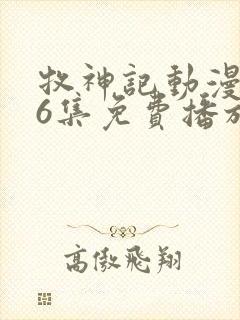 牧神記動漫
6集免費播放
高傲飛翔